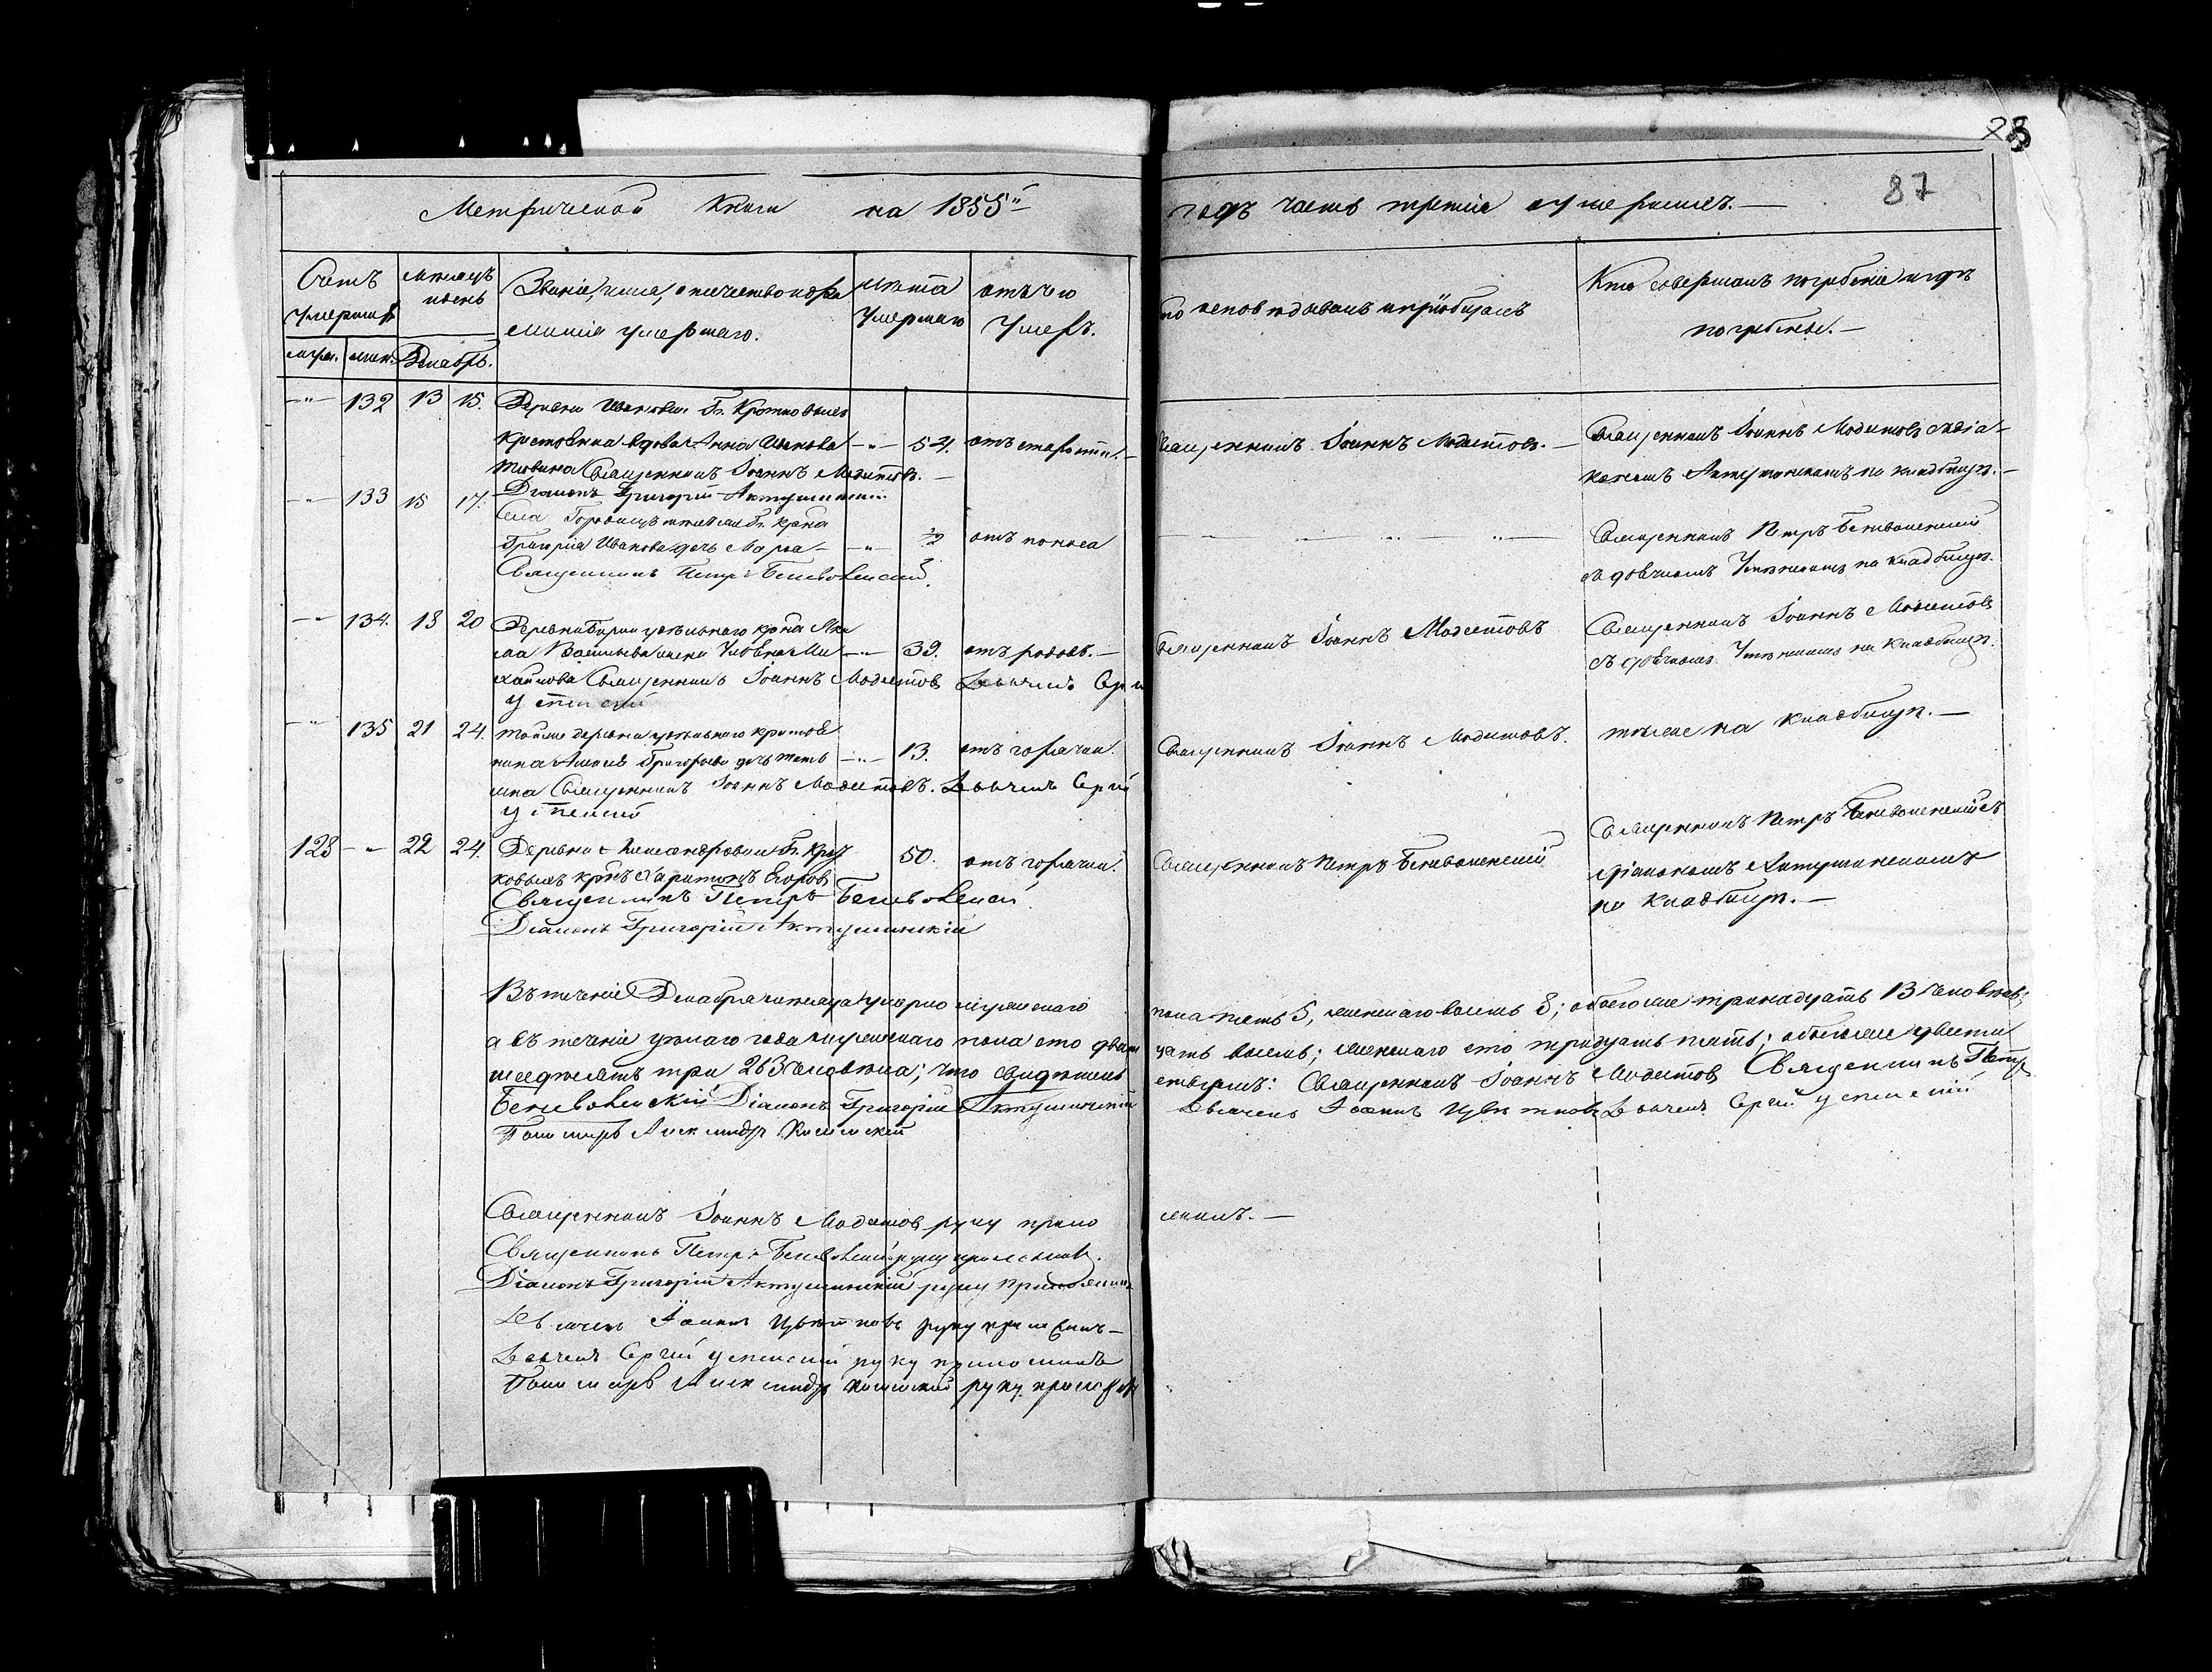 28
87
Метрической Книги на 1855й
годъ часть третія о умершихъ.—
Счетъ умершихъ
Мѣсяцъ и день
Званіе, имя, отчество и фамилія умершаго.
Лѣта умершаго
отъ чего умеръ.
исповѣдывалъ и пріобщалъ
Кто совершалъ погребеніе и гдѣ погребены.—
муж. жен. Декабрь.
—"— 132 13 15. Деревни Ивановки Гг.
крестьянка вдова Анна Иванова —"— 54. отъ старости.—
Священникъ Іоаннъ Модестовъ.—
Священникъ Іоаннъ Модестовъ.—
Священникъ Іоаннъ Модестовъ съ діа-
кономъ на кладбищѣ.—
Діаконъ Григорій
—"— 133 15 17. Села Гг. кр-на
Григорія Иванова дочь —"— 1/2 отъ поноса
Священникъ Петръ Беневоленскій.
Священникъ Петръ Беневоленскій
съ дьячкомъ Успенскимъ на кладбищѣ.
—"— 134. 18 20 Деревни удѣльнаго кр-на
Васильева жена Ми- —"— 39. отъ родовъ.—
хайлова Священникъ Іоаннъ Модестовъ Дьячекъ Сергій
Успенскій
Священникъ Іоаннъ Модестовъ
Священникъ Іоаннъ Модестовъ
съ дьячкомъ Успенскимъ на кладбищѣ.
—"— 135 21 24. той же деревни удѣльнаго крестья-
нина Григорьева дочь —"— 13. отъ горячки.
Священникъ Іоаннъ Модестовъ. Дьячекъ Сергій
Успенскій
Священникъ Іоаннъ Модестовъ.
тѣже на кладбищѣ.—
128 —"— 22 24. Деревни Александровки Гг.
кр-нъ Харитонъ Егоровъ 50. отъ горячки.
Священникъ Петръ Беневоленскій
Діаконъ Григорій
Священникъ Петръ Беневоленскій
Священникъ Петръ Беневоленскій съ
діакономъ
на кладбищѣ.—
Въ теченіе Декабря мѣсяца умерло мужескаго
пола пять 5, женскаго восемь 8; обоего же тринадцать 13 человѣкъ;
а въ теченіе цѣлаго года мужескаго пола сто двад-
цать восемь; женскаго сто тридцать пять; обоего же двести
шедесятъ три 263 человѣка; что свидѣтель-
ствуемъ: Священникъ Іоаннъ Модестовъ Священникъ Петръ
Беневоленскій Діаконъ Григорій
Дьячекъ Іоаннъ Цвѣтковъ Дьячекъ Сергій Успенскій
Пономарь Александръ
Священникъ Іоаннъ Модестовъ руку прило-
жилъ.—
Священникъ Петръ Беневоленскій руку приложилъ.
Діаконъ Григорій руку приложилъ
Дьячекъ Іоаннъ Цвѣтковъ руку приложилъ—
Дьячекъ Сергій Успенскій руку приложилъ
Пономарь Александръ руку приложилъ